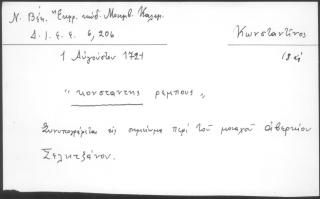 Ν. Βέη. "Εκφρ. κώδ. Μουρβ. Καλαμ.
Δ. Ι. Ε. Ε. 6, 206
Κωνσταντῖνος
1 Αὐγούστου 1721
18 αἰ
"κονσταντης ρεμπους"
Συνυπογράφεται εἰς σημείωμα περὶ τοῦ μοναχοῦ
Σελιτζάνου.